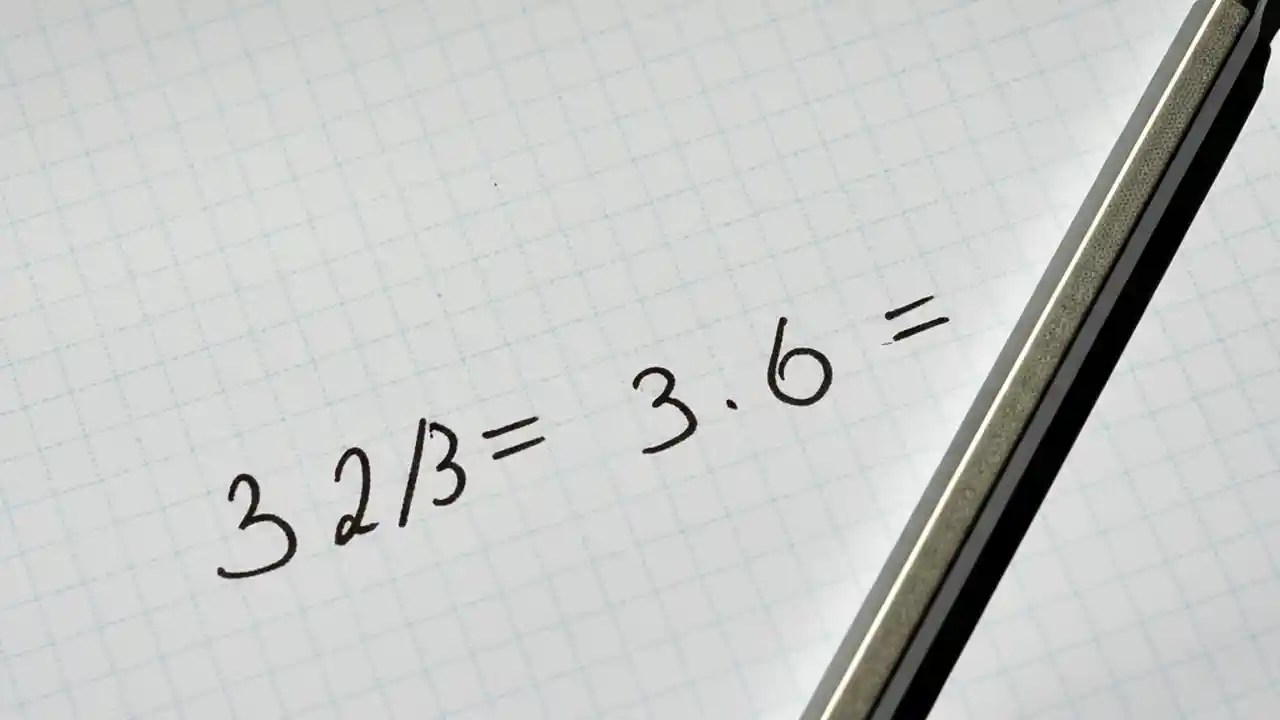 3 2/3 = 3.6 =